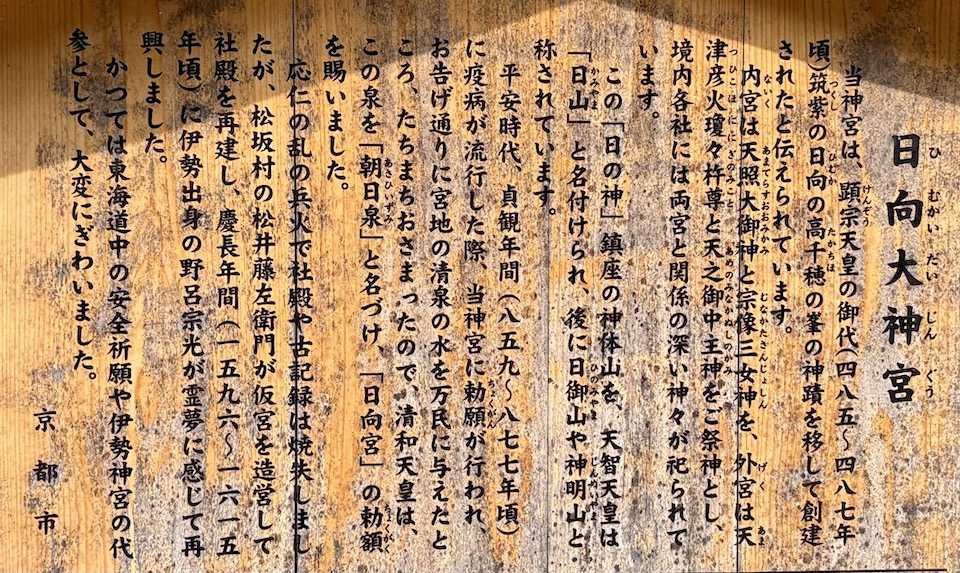 日向大神宮
当神宮は、顕宗天皇の御代(四八五〜四八七年
頃)筑紫の日向の高千穂の峯の神蹟を移して創建
されたと伝えられています。
内宮は天照大御神と宗像三女神を、外宮は天
津彦火瓊々杵尊と天之御中主神をご祭神とし、
境内各社には両宮と関係の深い神々が祀られて
います。
この「日の神」鎮座の神体山を、天智天皇は
「日山」と名付けられ、後に日御山や神明山と
称されています。
平安時代、貞観年間(八五九〜八七七年頃)
に疫病が流行した際、当神宮に勅願が行われ、
お告げ通りに宮地の清泉の水を万民に与えたと
ころ、たちまちおさまったので、清和天皇は、
この泉を「朝日泉」と名づけ、「日向宮」の勅額
を賜いました。
応仁の乱の兵火で社殿や古記録は焼失しまし
たが、松坂村の松井藤左衛門が仮宮を造営して
社殿を再建し、慶長年間(一五九六〜一六一五
年頃)に伊勢出身の野呂宗光が霊夢に感じて再
興しました。
かつては東海道中の安全祈願や伊勢神宮の代
参として、大変にぎわいました。
京都市